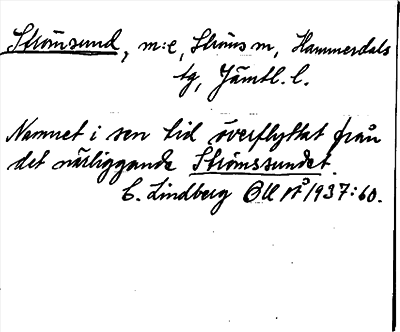 Strömsund, m:e, Ströms m, Hammerdals
tg, Jämtl. l.
Namnet i sen tid överflyttat från
det närliggande Strömssundet.
C. Lindberg OU № 1937:60.